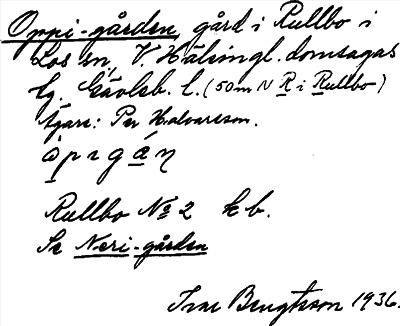 Oppi-gården, gård i Rullbo i
Los sn, V. Hälsingl. domsagas
tg. Gävleb. l. (50 m N R i Rullbo)
Ägare: Per Halvarsson.
Rullbo No 2 kb.
Se Neri-gården
Ivar Bengtsson 1936.